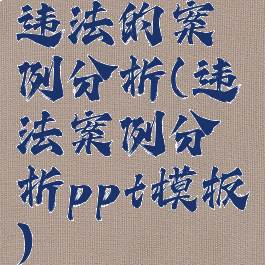 违法的案
例分析(违
法案例分
析ppt模板
)